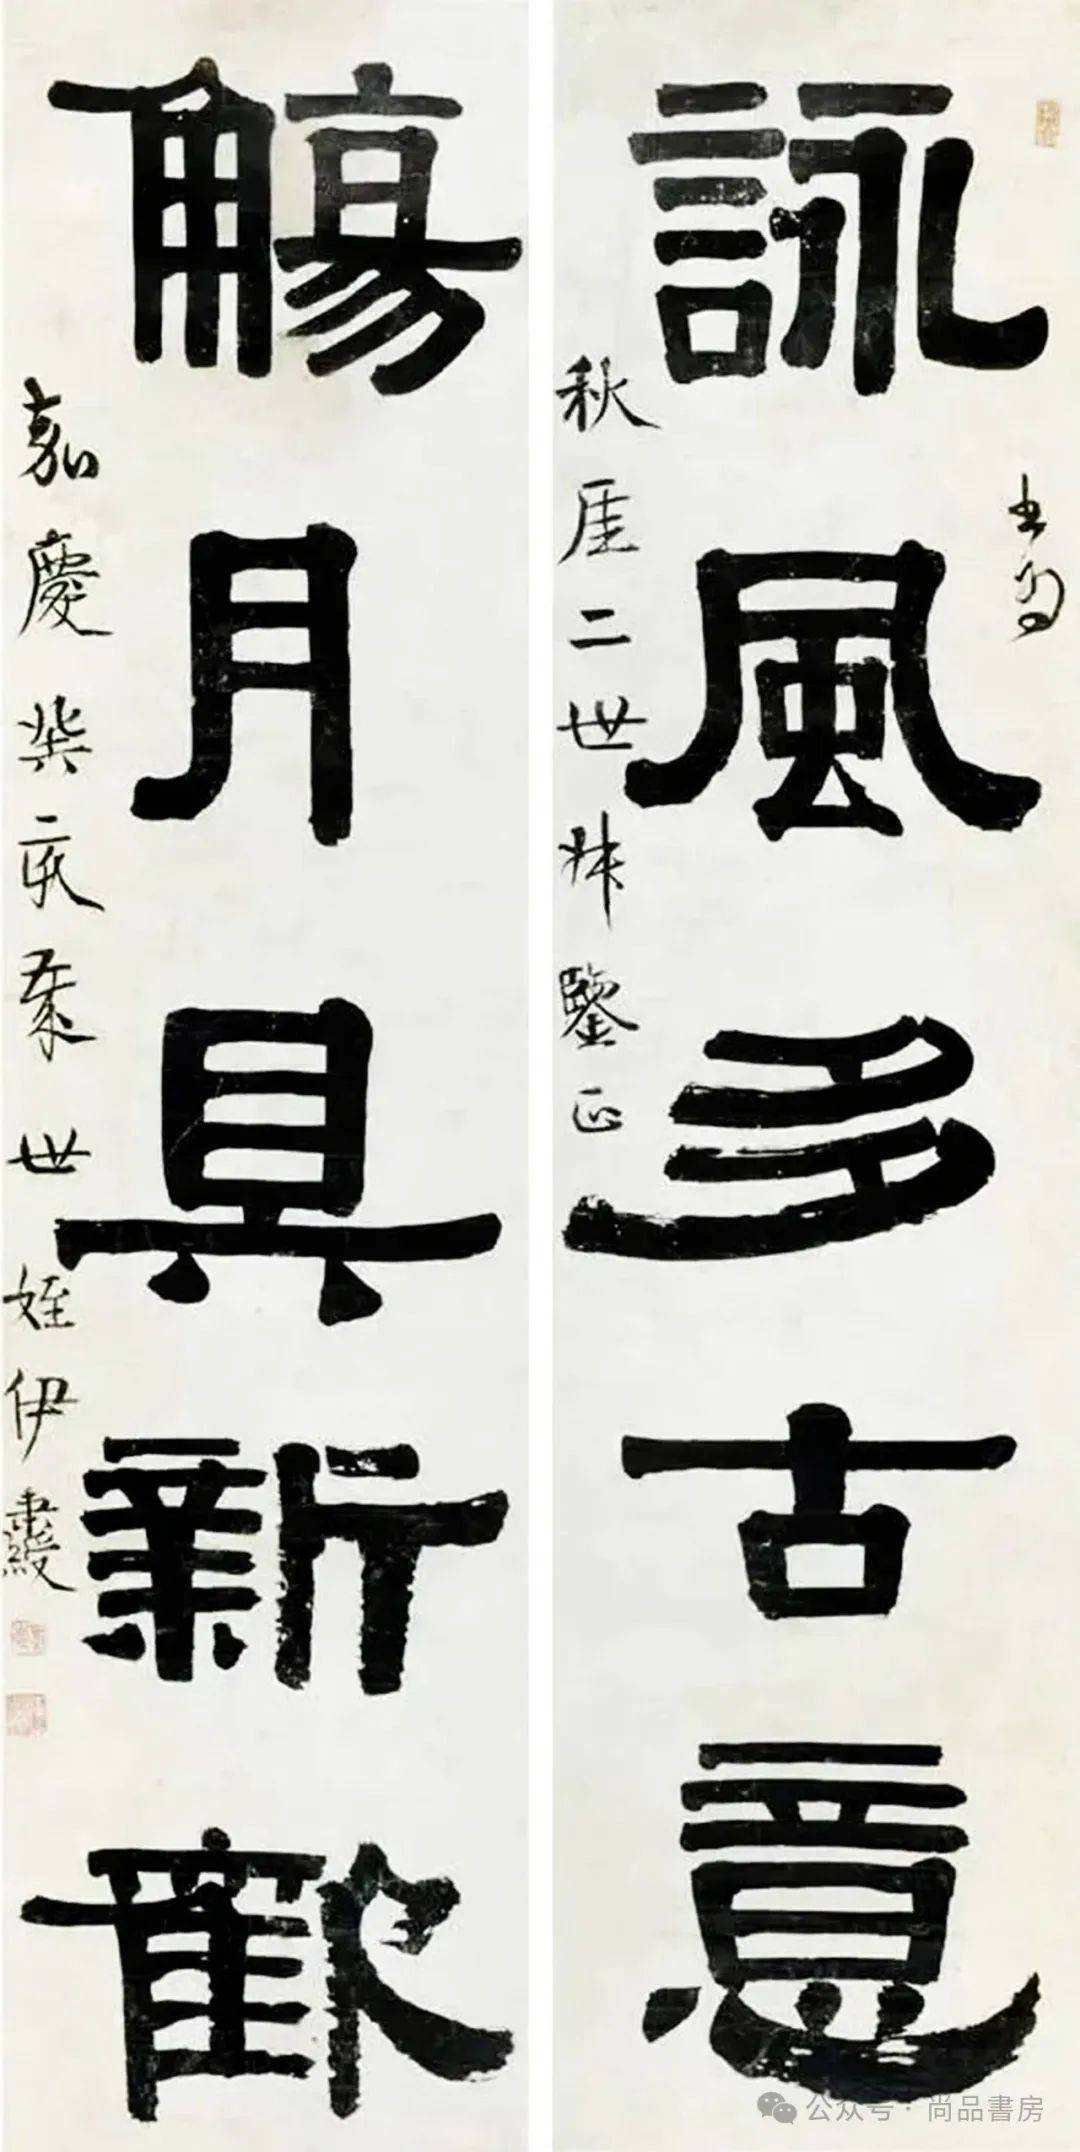 詠風多古意
書為
秋厓二世叔鑒正
觴月具新歡
嘉慶癸亥 世姪伊秉綬
公众号·尚品書房